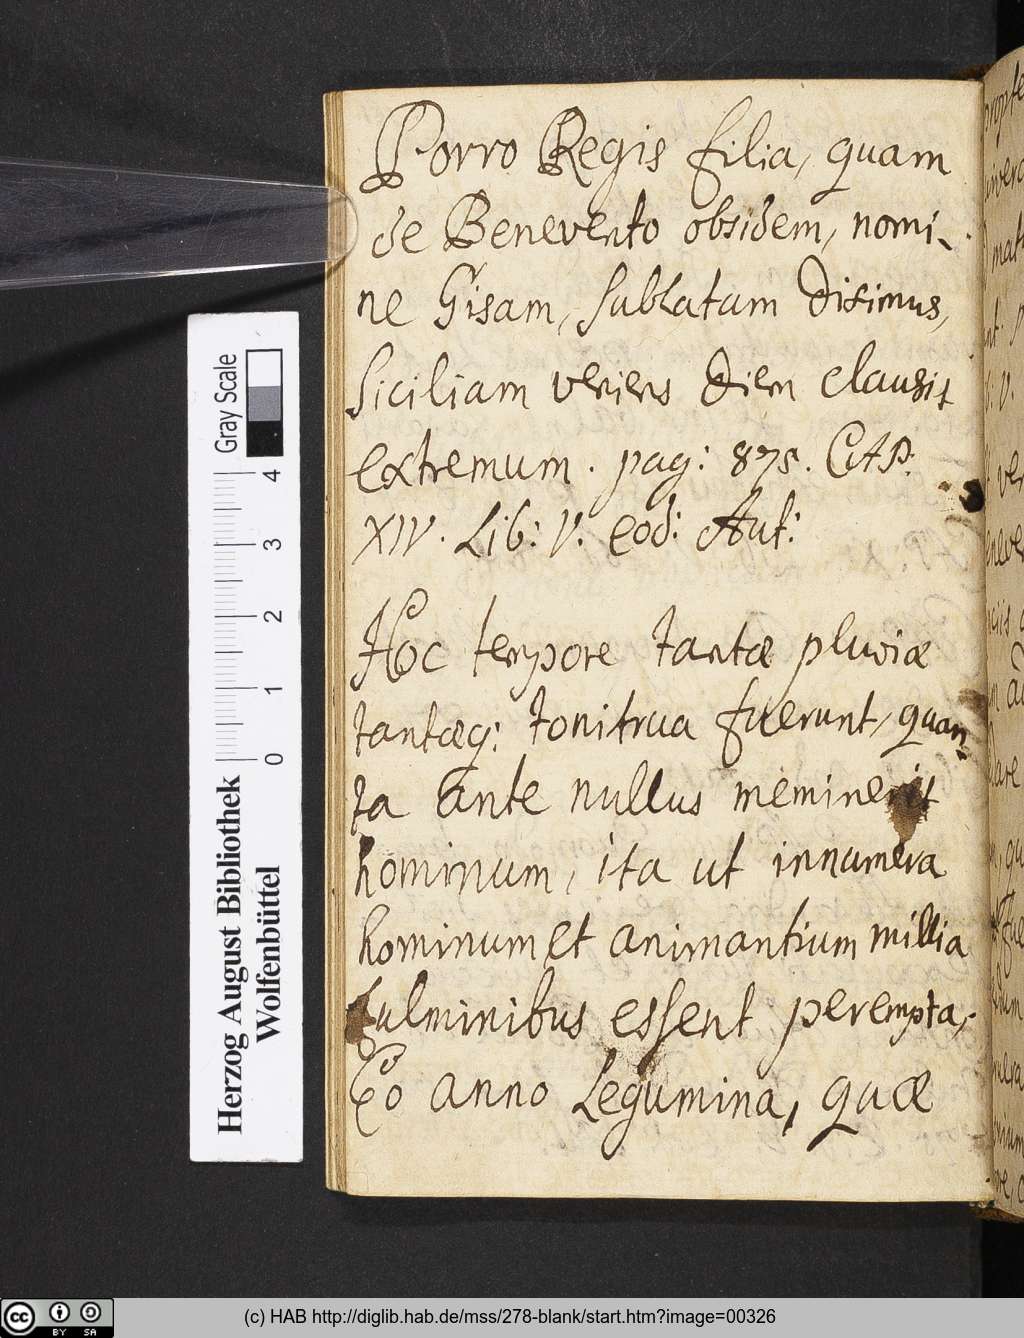 Porro Regis filia, quam
de Benevento obsidem, nomi-
ne Gisam, sublatam diximus,
Siciliam veniens diem clausit
extremum. pag: 875. CAP.
XIV. Lib: V. eod: Aut:
Hoc tempore tantæ pluviæ
tantæq: tonitrua fuerunt, quan-
ta ante nullus meminerit
hominum, ita ut innumera
hominum et animantium millia
fulminibus essent perempta,
Eo anno Legumina, quæ
Herzog August Bibliothek
Wolfenbüttel
Gray Scale
0 1 2 3 4
cc BY SA
(c) HAB http://diglib.hab.de/mss/278-blank/start.htm?image=00326